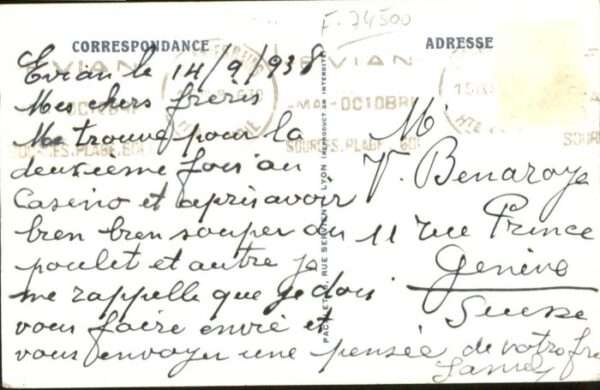 F. 74500
CORRESPONDANCE
ADRESSE
EVIAN
MAI-OCTOBRE
SOURCES. PLAGE.
Evian le 14/9/938
Mes chers frères
Me trouve pour la
deuxième fois au
Casino et après avoir
bien bien souper du
poulet et autre je
me rappelle que je dois
vous faire envié et
vous envoyer une pensée de votre fre
M
V. Benaroya
11 rue Prince
Genève
Suisse
RUE SERVIENT LYON (REPRODUCTION INTERDITE)